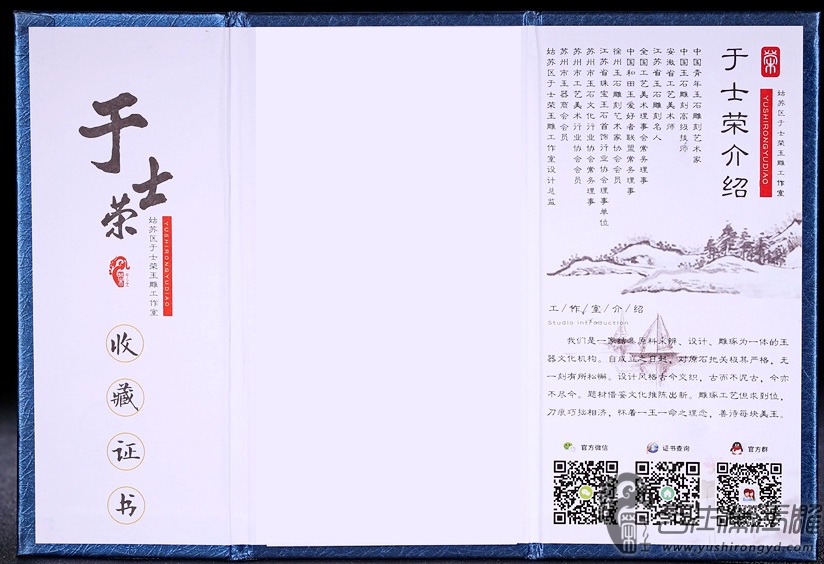 于士荣
姑苏区于士荣玉雕工作室
YUSHIRONGYUDIAO
收藏证书
荣
姑苏区于士荣玉雕工作室
YUSHIRONGYUDIAO
于士荣介绍
中国青年玉石雕刻艺术家
中国玉石雕刻高级技师
安徽省工艺美术师
江苏省玉石雕刻名人
全国工艺美术理事会常务理事
中国和田玉爱好者联盟常务理事
徐州玉石雕刻艺术家协会会员
江苏省珠宝玉石首饰行业协会理事单位
苏州市玉石文化行业协会常务理事
苏州市工艺美术行业协会会员
苏州市玉器商会会员
姑苏区于士荣玉雕工作室设计总监
工/作/室/介/绍
Studio introduction
我们是一家结集原料采辨、设计、雕琢为一体的玉
器文化机构。自成立之日起，对原石把关极其严格，无
一刻有所松懈。设计风格古今交织，古而不泥古，今亦
不尽今。题材借鉴文化推陈出新。雕琢工艺但求到位，
刀痕巧拙相济，怀着一玉一命之理念，善待每块美玉。
官方微信
证书查询
官方群
www.yushirongyd.com